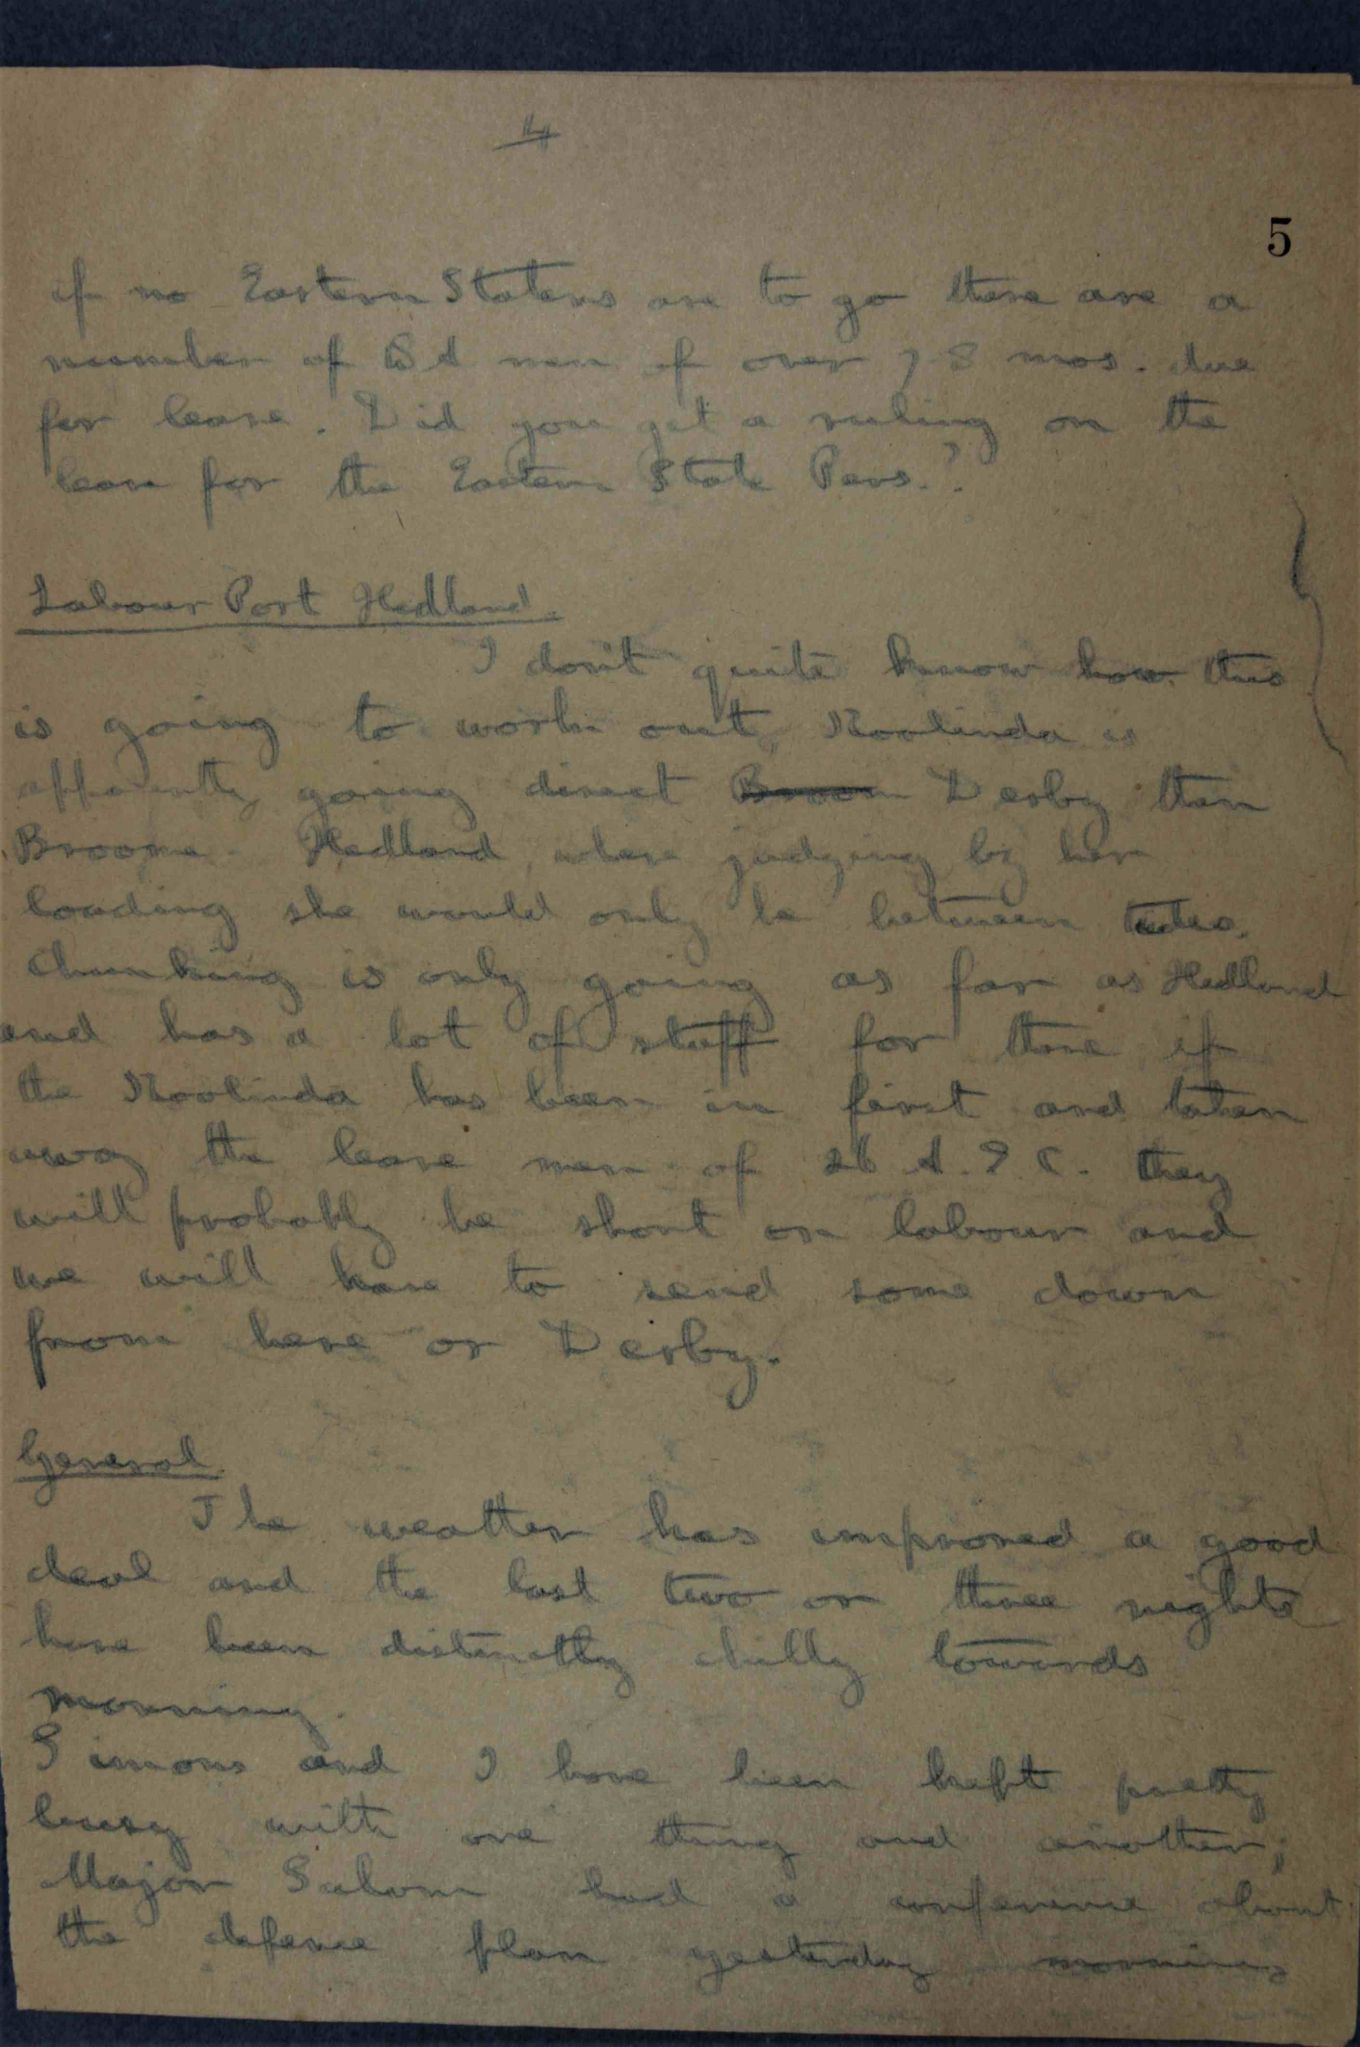 4
5
if no Eastern Staters are to go there are a
number of men of over 18 mos. due
for leave. Did you get a ruling on the
leave for the Eastern State Pers.?
Labour Port Hedland.
I don't quite know how this
is going to work out, Koolinda is
apparently going direct Broom Derby then
Broome Hedland, where judging by her
loading she would only be between tides.
Chunking is only going as far as Hedland
and has a lot of stuff for there if
the Koolinda has been in first and taken
away the leave men of 26 A.E.C. they
will probably be short on labour and
we will have to send some down
from here or Derby.
General.
The weather has improved a good
deal and the last two or three nights
have been distinctly chilly towards
morning.
Simons and I have been kept pretty
busy with one thing and another;
Major had a conference about
the defence plan yesterday morning